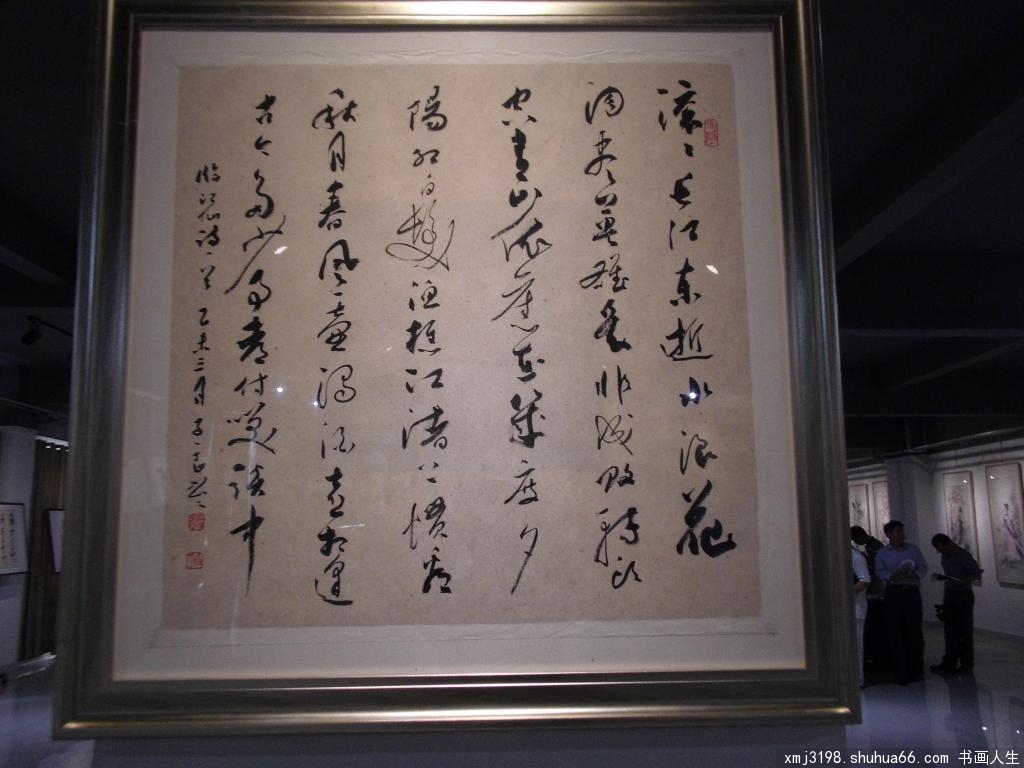 滚滚长江东逝水浪花
淘尽英雄是非成败转头
空青山依旧在几度夕
陽红白髮渔樵江渚上惯看
秋月春風一壶濁酒喜相逢
古今多少事都付笑谈中
临江仙诗一首 乙未三月
xmj3198.shuhua66.com 书画人生